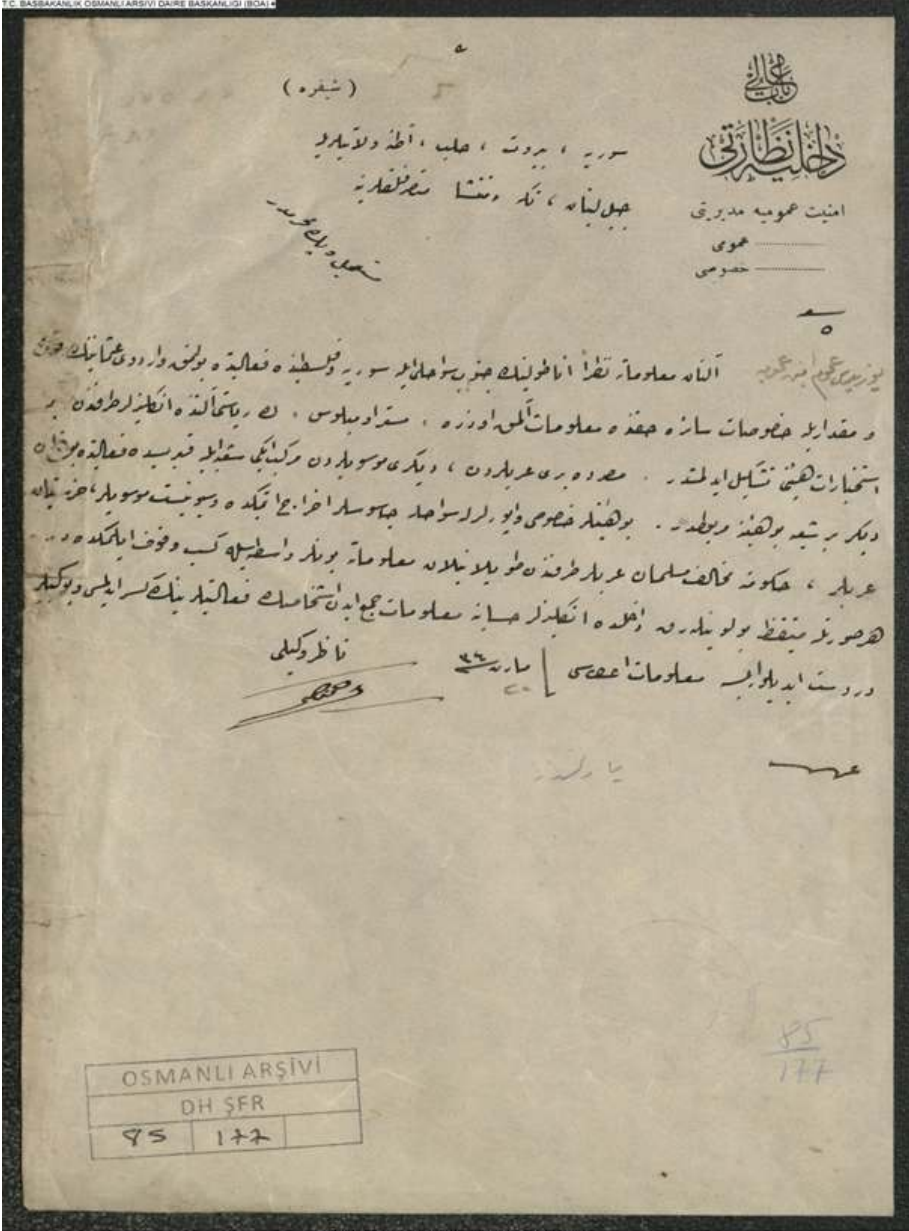 T.C. BAŞBAKANLIK OSMANLI ARŞİVİ DAİRE BAŞKANLIĞI (BOA)
٥
( شیفره )
باب عالی
داخلیه نظارتی
امنیت عمومیه مدیریتی
عمومی
خصوصی
سوریه ، بیروت ، حلب ، آطنه ولایتلریله
جبل لبنان ، تکه ومنتشا متصرفلقلرینه
آلنان معلوماته نظراً آناطولینك جنوب سواحلی ایله سوریه و فلسطینده فعالیتده بولنمق و اردوی عثمانینك
و مقداریله خصوصات سائره حقنده معلومات آلمق اوزره ، مستر اد ریاستی آلتنده انکلیزلر طرفندن بر
استخبارات هیئتی تشکیل ایدلمشدر . مصرده بری عربلردن ، دیکری موسویلردن مرکب ایکی شعبه ایله قبریسده فعالیتده بولنان
دیکر بر شعبه بو هیئته مربوطدر . بو هیئتلر خصوصی واپورلرله سواحله جاسوسلر اخراج ایتمکده و سیونیست موسویلر ، خرستیان
عربلر ، حکومته مخالف مسلمان عربلر طرفندن طوپلانیلان معلوماته بونلر واسطه سیله کسب وقوف ایلمکده در .
هر صورتله متیقظ بولونیلەرق داخلده انکلیزلر حسابنه معلومات جمع ایدن اشخاصك فعالیتلرینك کسر ایدلمسی و بو کبیلر
دردست ایدیلور ایسه معلومات اعطاسی
مارت ٣٤
ناظر وکیلی
85
177
OSMANLI ARŞİVİ
DH ŞFR
85 177